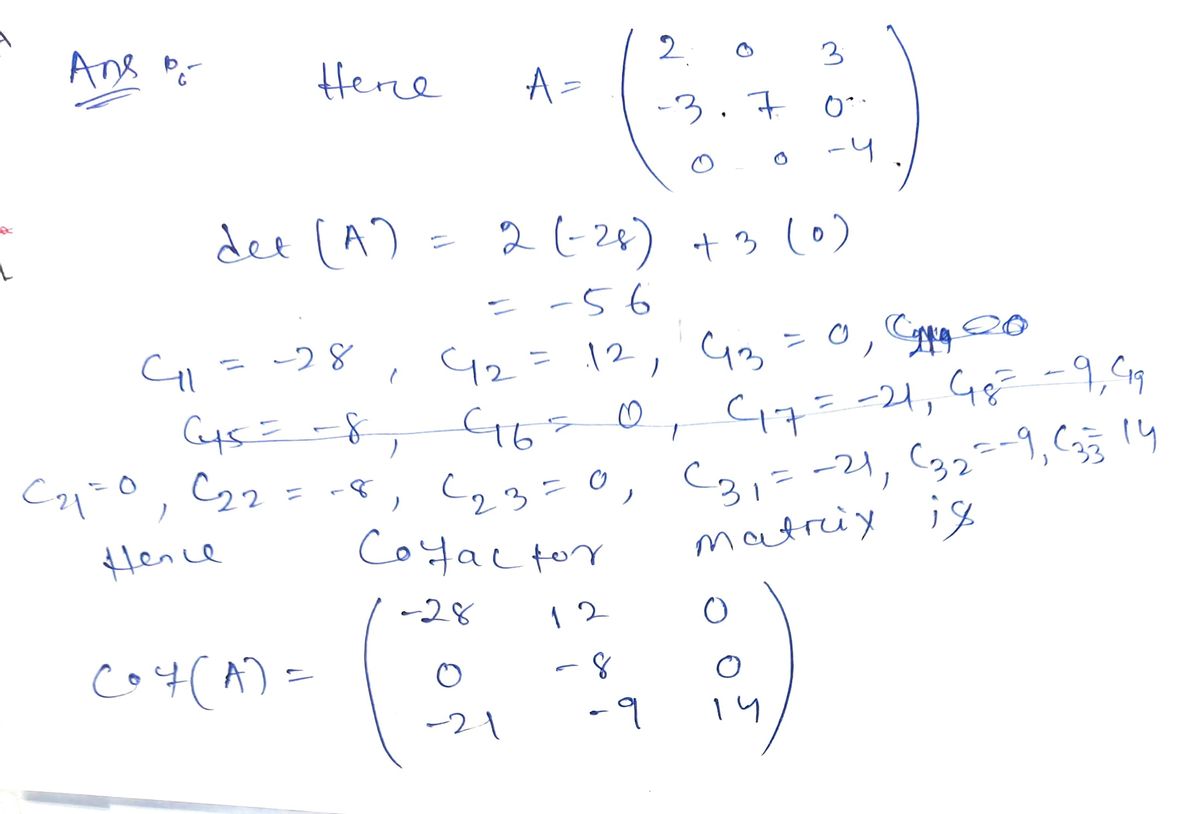 Ans :- Here A = ( 2 0 3
-3 7 0
0 0 -4 )
det (A) = 2 (-28) + 3 (0)
= -56
C11 = -28 , C12 = 12, C13 = 0,
C45 = -8, C16 = 0, C17 = -21, C18 = -9, C19
C21 = 0, C22 = -8, C23 = 0, C31 = -21, C32 = -9, C33 = 14
Hence Cofactor matrix is
Cof(A) = ( -28 12 0
0 -8 0
-21 -9 14 )